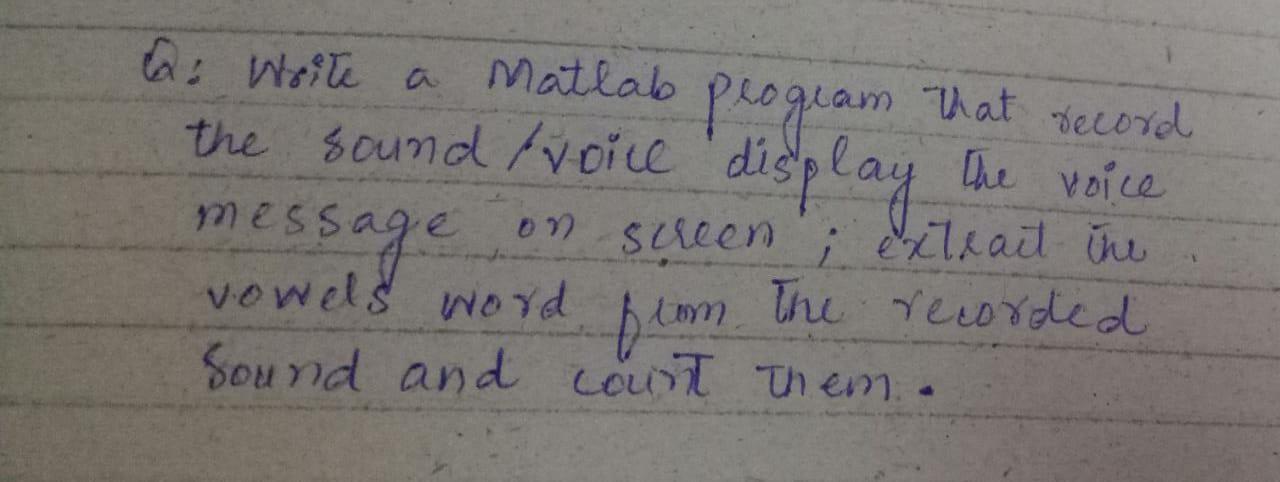 Q: Write a Matlab program that record
the sound/voice display the voice
message on screen ; extract the
vowels word from the recorded
sound and count them.